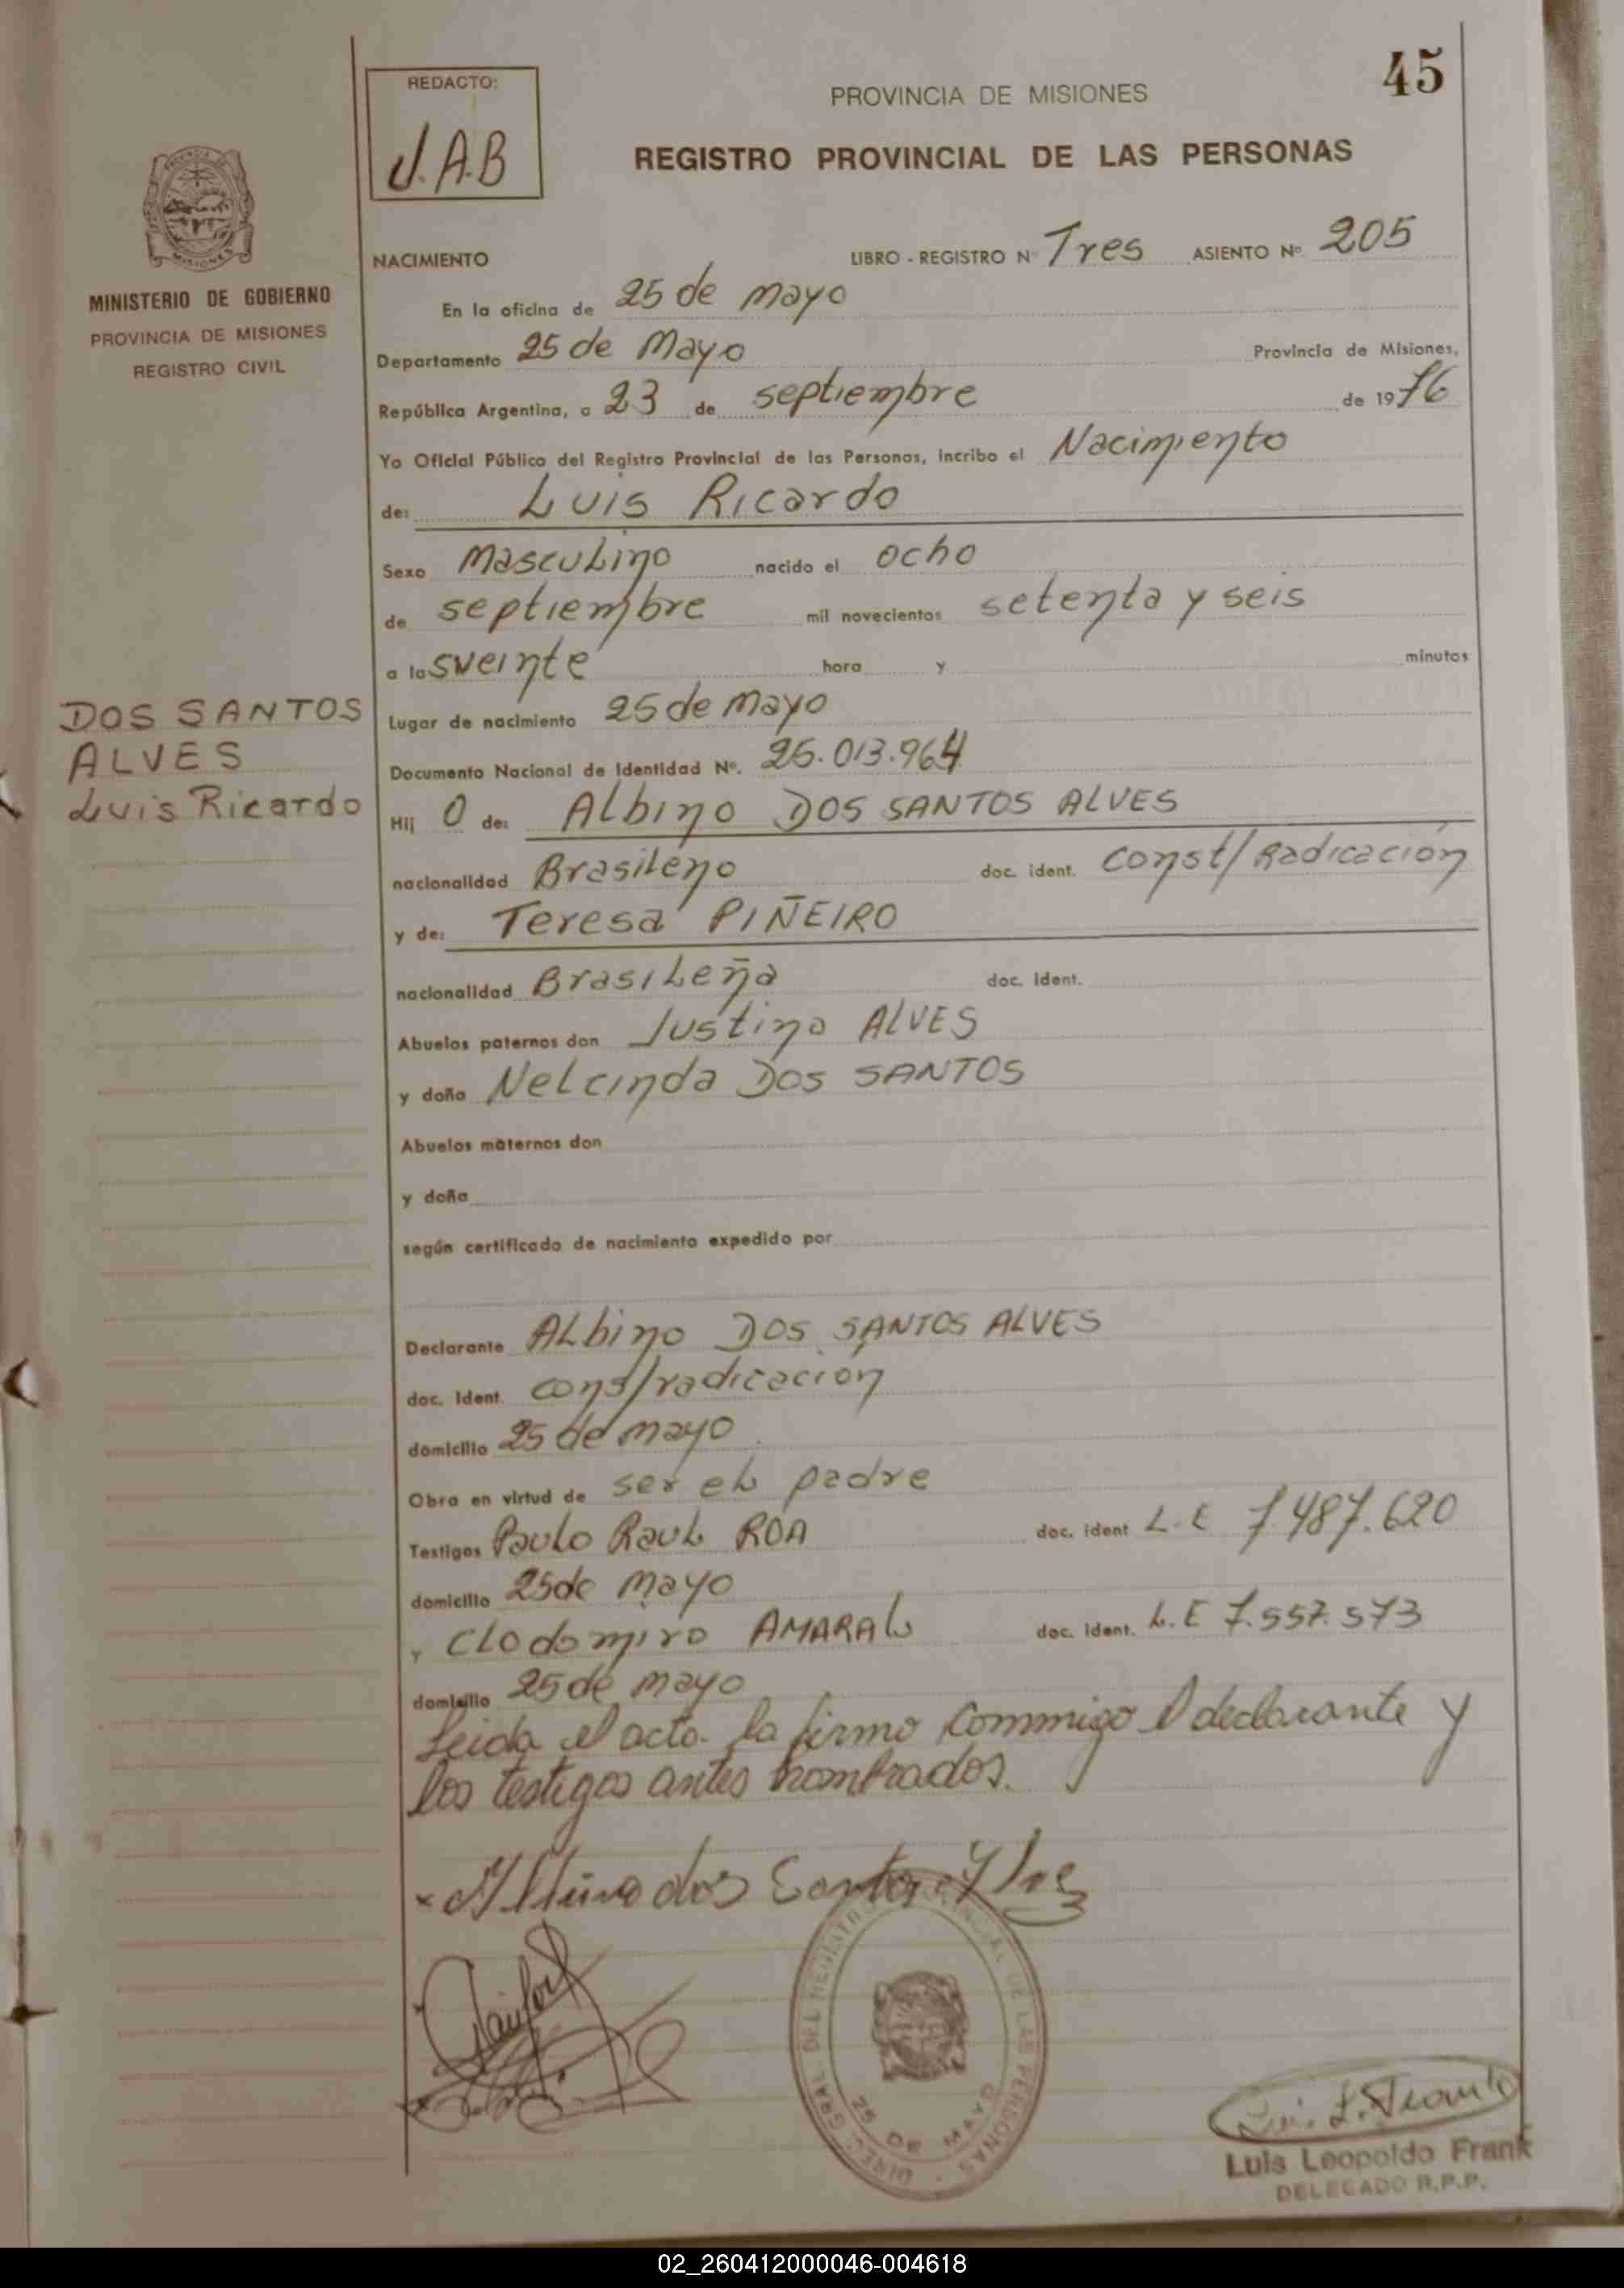 45
REDACTO:
J.A.B
PROVINCIA DE MISIONES
REGISTRO PROVINCIAL DE LAS PERSONAS
MISIONES
MINISTERIO DE GOBIERNO
PROVINCIA DE MISIONES
REGISTRO CIVIL
NACIMIENTO LIBRO - REGISTRO Nº Tres ASIENTO Nº 205
En la oficina de 25 de mayo
Departamento 25 de Mayo Provincia de Misiones,
República Argentina, a 23 de septiembre de 1976
Yo Oficial Público del Registro Provincial de las Personas, incribo el Nacimiento
de: Luis Ricardo
Sexo Masculino nacido el ocho
de septiembre mil novecientos setenta y seis
a las veinte hora y minutos
Lugar de nacimiento 25 de mayo
DOS SANTOS
ALVES
Luis Ricardo
Documento Nacional de Identidad Nº. 25.013.964
Hij o de: Albino DOS SANTOS ALVES
nacionalidad Brasileno doc. ident. const/Radicación
y de: Teresa PIÑEIRO
nacionalidad Brasileña doc. Ident.
Abuelos paternos don Justino ALVES
y doña Nelcinda DOS SANTOS
Abuelos maternos don
y doña
según certificado de nacimiento expedido por
Declarante Albino DOS SANTOS ALVES
doc. Ident. const/radicación
domicilio 25 de mayo
Obra en virtud de ser el padre
Testigos Paulo Raul ROA doc. ident L.E 7.487.620
domicilio 25 de mayo
y Clodomiro AMARAL doc. ident. L.E 7.557.573
domicilio 25 de mayo
Leida el acta la firma commigo el declarante y
los testigos antes nombrados.
dos Santos
DIREC. GRAL. DEL REGISTRO PROVINCIAL DE LAS PERSONAS
25 DE MAYO
Luis Leopoldo Frank
DELEGADO R.P.P.
02_260412000046-004618